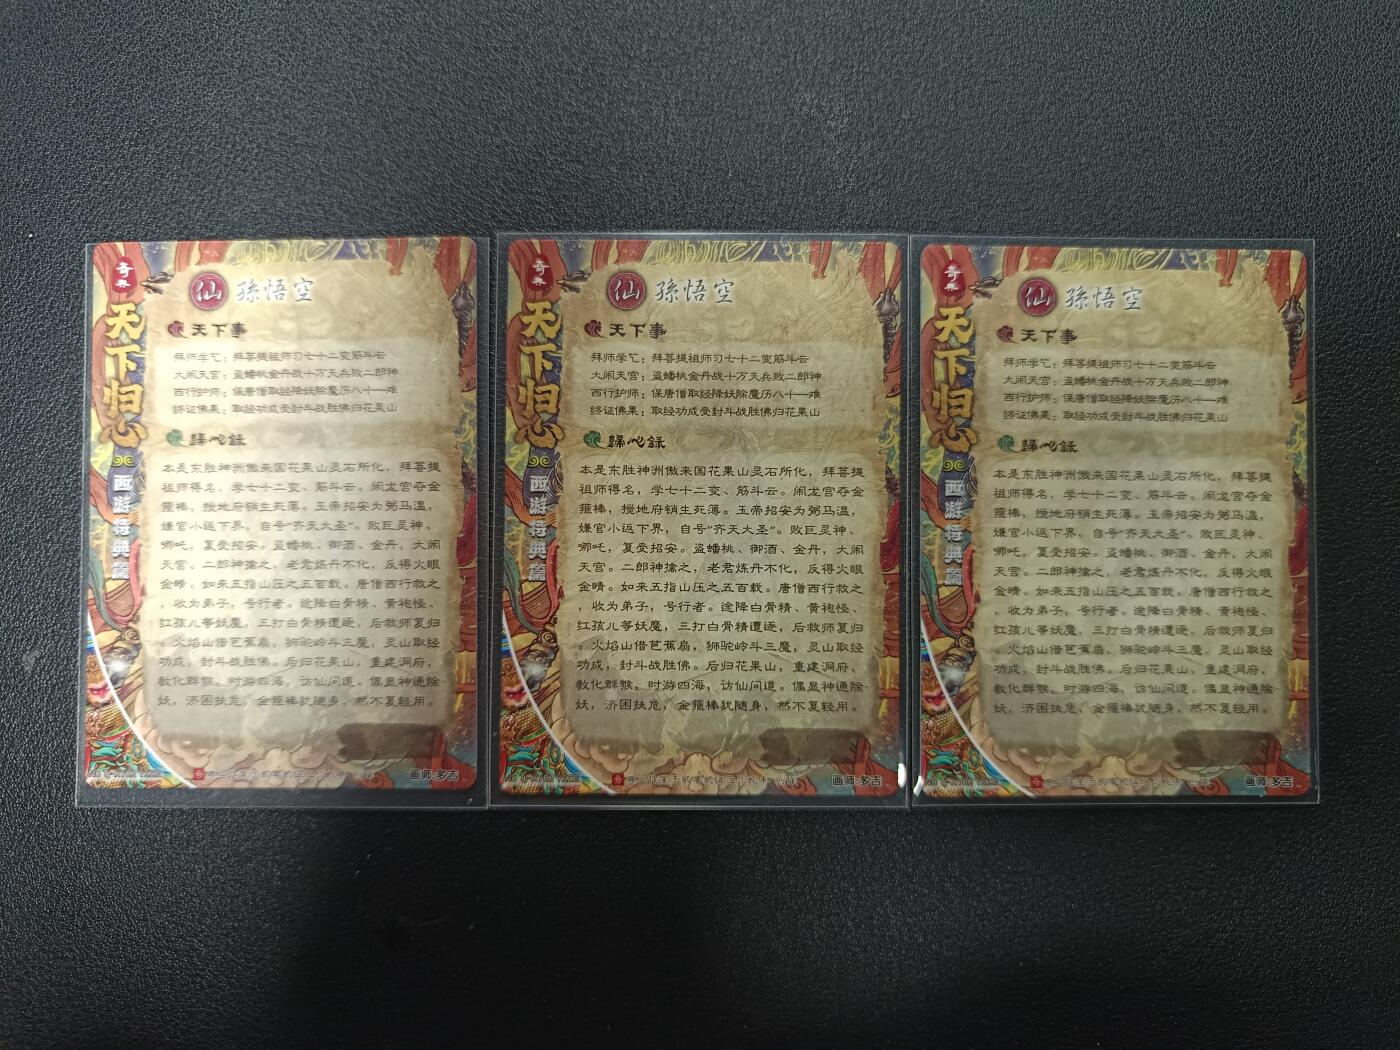 奇典
天下归心
西游特典篇
仙 孫悟空
天下事
拜师学艺：拜菩提祖师习七十二变筋斗云
大闹天宫：盗蟠桃金丹战十万天兵败二郎神
西行护师：保唐僧取经降妖除魔历八十一难
终证佛果：取经功成受封斗战胜佛归花果山
歸心録
本是东胜神洲傲来国花果山灵石所化，拜菩提
祖师得名，学七十二变、筋斗云。闹龙宫夺金
箍棒，搅地府销生死薄。玉帝招安为弼马温，
嫌官小返下界，自号“齐天大圣”。败巨灵神、
哪吒，复受招安。盗蟠桃、御酒、金丹，大闹
天宫。二郎神擒之，老君炼丹不化，反得火眼
金晴。如来五指山压之五百载。唐僧西行救之
，收为弟子，号行者。途降白骨精、黄袍怪、
红孩儿等妖魔，三打白骨精遭逐，后救师复归
。火焰山借芭蕉扇，狮驼岭斗三魔，灵山取经
功成，封斗战胜佛。后归花果山，重建洞府，
教化群猴，时游四海，访仙问道。偶显神通除
妖，济困扶危，金箍棒犹随身，然不复轻用。
画师:多吉
奇典
天下归心
西游特典篇
仙 孫悟空
天下事
拜师学艺：拜菩提祖师习七十二变筋斗云
大闹天宫：盗蟠桃金丹战十万天兵败二郎神
西行护师：保唐僧取经降妖除魔历八十一难
终证佛果：取经功成受封斗战胜佛归花果山
歸心録
本是东胜神洲傲来国花果山灵石所化，拜菩提
祖师得名，学七十二变、筋斗云。闹龙宫夺金
箍棒，搅地府销生死薄。玉帝招安为弼马温，
嫌官小返下界，自号“齐天大圣”。败巨灵神、
哪吒，复受招安。盗蟠桃、御酒、金丹，大闹
天宫。二郎神擒之，老君炼丹不化，反得火眼
金晴。如来五指山压之五百载。唐僧西行救之
，收为弟子，号行者。途降白骨精、黄袍怪、
红孩儿等妖魔，三打白骨精遭逐，后救师复归
。火焰山借芭蕉扇，狮驼岭斗三魔，灵山取经
功成，封斗战胜佛。后归花果山，重建洞府，
教化群猴，时游四海，访仙问道。偶显神通除
妖，济困扶危，金箍棒犹随身，然不复轻用。
画师:多吉
奇典
天下归心
西游特典篇
仙 孫悟空
天下事
拜师学艺：拜菩提祖师习七十二变筋斗云
大闹天宫：盗蟠桃金丹战十万天兵败二郎神
西行护师：保唐僧取经降妖除魔历八十一难
终证佛果：取经功成受封斗战胜佛归花果山
歸心録
本是东胜神洲傲来国花果山灵石所化，拜菩提
祖师得名，学七十二变、筋斗云。闹龙宫夺金
箍棒，搅地府销生死薄。玉帝招安为弼马温，
嫌官小返下界，自号“齐天大圣”。败巨灵神、
哪吒，复受招安。盗蟠桃、御酒、金丹，大闹
天宫。二郎神擒之，老君炼丹不化，反得火眼
金晴。如来五指山压之五百载。唐僧西行救之
，收为弟子，号行者。途降白骨精、黄袍怪、
红孩儿等妖魔，三打白骨精遭逐，后救师复归
。火焰山借芭蕉扇，狮驼岭斗三魔，灵山取经
功成，封斗战胜佛。后归花果山，重建洞府，
教化群猴，时游四海，访仙问道。偶显神通除
妖，济困扶危，金箍棒犹随身，然不复轻用。
画师:多吉